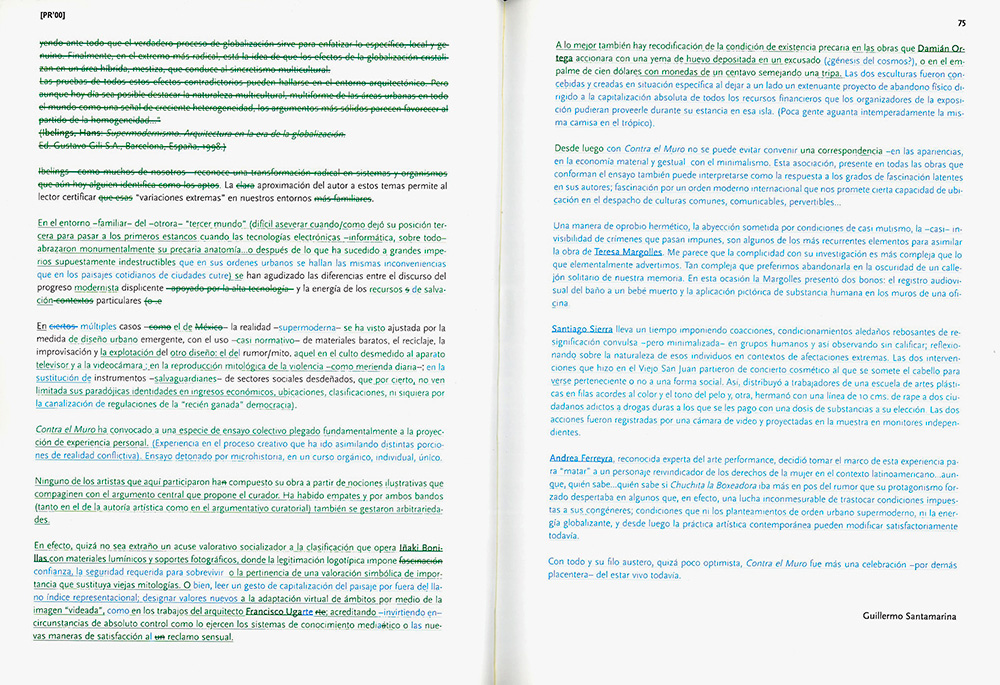 [PR'00]
yendo ante todo que el verdadero proceso de globalización sirve para enfatizar lo específico, local y ge-
nuino. Finalmente, en el extremo más radical, está la idea de que los efectos de la globalización cristali-
zan en un área híbrida, mestiza, que conduce al sincretismo multicultural.
Las pruebas de todos estos efectos contradictorios pueden hallarse en el entorno arquitectónico. Pero
aunque hoy día sea posible destacar la naturaleza multicultural, multiforme de las áreas urbanas en todo
el mundo como una señal de creciente heterogeneidad, los argumentos más sólidos parecen favorecer al
partido de la homogeneidad..."
(Ibelings, Hans: Supermodernismo. Arquitectura en la era de la globalización.
Ed. Gustavo Gili S.A., Barcelona, España, 1998.)
Ibelings –como muchos de nosotros– reconoce una transformación radical en sistemas y organismos
que aún hoy alguien identifica como los aptos. La clara aproximación del autor a estos temas permite al
lector certificar que esas "variaciones extremas" en nuestros entornos más familiares.
En el entorno –familiar– del –otrora– "tercer mundo" (difícil aseverar cuando/como dejó su posición ter-
cera para pasar a los primeros estancos cuando las tecnologías electrónicas –informática, sobre todo–
abrazaron monumentalmente su precaria anatomía...o después de lo que ha sucedido a grandes impe-
rios supuestamente indestructibles que en sus ordenes urbanos se hallan las mismas inconveniencias
que en los paisajes cotidianos de ciudades cutre) se han agudizado las diferencias entre el discurso del
progreso modernista displicente –apoyado por la alta tecnología– y la energía de los recursos s de salva-
ción contextos particulares (o .e
En ciertos- múltiples casos –como el de México– la realidad –supermoderna– se ha visto ajustada por la
medida de diseño urbano emergente, con el uso –casi normativo– de materiales baratos, el reciclaje, la
improvisación y la explotación del otro diseño: el del rumor/mito, aquel en el culto desmedido al aparato
televisor y a la videocámara ; en la reproducción mitológica de la violencia –como merienda diaria–: en
la sustitución de instrumentos –salvaguardianes– de sectores sociales desdeñados, que por cierto, no ven
limitada sus paradójicas identidades en ingresos económicos, ubicaciones, clasificaciones, ni siquiera por
la canalización de regulaciones de la "recién ganada" democracia).
Contra el Muro ha convocado a una especie de ensayo colectivo plegado fundamentalmente a la proyec-
ción de experiencia personal. (Experiencia en el proceso creativo que ha ido asimilando distintas porcio-
nes de realidad conflictiva). Ensayo detonado por microhistoria, en un curso orgánico, individual, único.
Ninguno de los artistas que aquí participaron han compuesto su obra a partir de nociones ilustrativas que
compaginen con el argumento central que propone el curador. Ha habido empates y por ambos bandos
(tanto en el de la autoría artística como en el argumentativo curatorial) también se gestaron arbitrarieda-
des.
En efecto, quizá no sea extraño un acuse valorativo socializador a la clasificación que opera Iñaki Boni-
llas con materiales lumínicos y soportes fotográficos, donde la legitimación logotípica impone fascinación
confianza, la seguridad requerida para sobrevivir o la pertinencia de una valoración simbólica de impor-
tancia que sustituya viejas mitologías. O bien, leer un gesto de capitalización del paisaje por fuera del lla-
no índice representacional; designar valores nuevos a la adaptación virtual de ámbitos por medio de la
imagen "videada", como en los trabajos del arquitecto Francisco Ugarte rte; acreditando –invirtiendo en–
circunstancias de absoluto control como lo ejercen los sistemas de conocimiento mediático o las nue-
vas maneras de satisfacción al un reclamo sensual.
75
A lo mejor también hay recodificación de la condición de existencia precaria en las obras que Damián Or-
tega accionara con una yema de huevo depositada en un excusado (¿génesis del cosmos?), o en el em-
palme de cien dólares con monedas de un centavo semejando una tripa. Las dos esculturas fueron con-
cebidas y creadas en situación específica al dejar a un lado un extenuante proyecto de abandono físico di-
rigido a la capitalización absoluta de todos los recursos financieros que los organizadores de la exposi-
ción pudieran proveerle durante su estancia en esa isla. (Poca gente aguanta intemperadamente la mis-
ma camisa en el trópico).
Desde luego con Contra el Muro no se puede evitar convenir una correspondencia –en las apariencias,
en la economía material y gestual  con el minimalismo. Esta asociación, presente en todas las obras que
conforman el ensayo también puede interpretarse como la respuesta a los grados de fascinación latentes
en sus autores; fascinación por un orden moderno internacional que nos promete cierta capacidad de ubi-
cación en el despacho de culturas comunes, comunicables, pervertibles...
Una manera de oprobio hermético, la abyección sometida por condiciones de casi mutismo, la –casi– in-
visibilidad de crímenes que pasan impunes, son algunos de los más recurrentes elementos para asimilar
la obra de Teresa Margolles. Me parece que la complicidad con su investigación es más compleja que lo
que elementalmente advertimos. Tan compleja que preferimos abandonarla en la oscuridad de un calle-
jón solitario de nuestra memoria. En esta ocasión la Margolles presento dos bonos: el registro audiovi-
sual del baño a un bebé muerto y la aplicación pictórica de substancia humana en los muros de una ofi-
cina.
Santiago Sierra lleva un tiempo imponiendo coacciones, condicionamientos aledaños rebosantes de re-
significación convulsa –pero minimalizada– en grupos humanos y así observando sin calificar; reflexio-
nando sobre la naturaleza de esos individuos en contextos de afectaciones extremas. Las dos interven-
ciones que hizo en el Viejo San Juan partieron de concierto cosmético al que se somete el cabello para
verse perteneciente o no a una forma social. Así, distribuyó a trabajadores de una escuela de artes plásti-
cas en filas acordes al color y el tono del pelo y, otra, hermanó con una línea de 10 cms. de rape a dos ciu-
dadanos adictos a drogas duras a los que se les pago con una dosis de substancias a su elección. Las dos
acciones fueron registradas por una cámara de video y proyectadas en la muestra en monitores indepen-
dientes.
Andrea Ferreyra, reconocida experta del arte performance, decidió tomar el marco de esta experiencia pa-
ra "matar" a un personaje reivindicador de los derechos de la mujer en el contexto latinoamericano...aun-
que, quién sabe...quién sabe si Chuchita la Boxeadora iba más en pos del rumor que su protagonismo for-
zado despertaba en algunos que, en efecto, una lucha inconmesurable de trastocar condiciones impues-
tas a sus congéneres; condiciones que ni los planteamientos de orden urbano supermoderno, ni la ener-
gía globalizante, y desde luego la práctica artística contemporánea pueden modificar satisfactoriamente
todavía.
Con todo y su filo austero, quizá poco optimista, Contra el Muro fue más una celebración –por demás
placentera– del estar vivo todavía.
Guillermo Santamarina